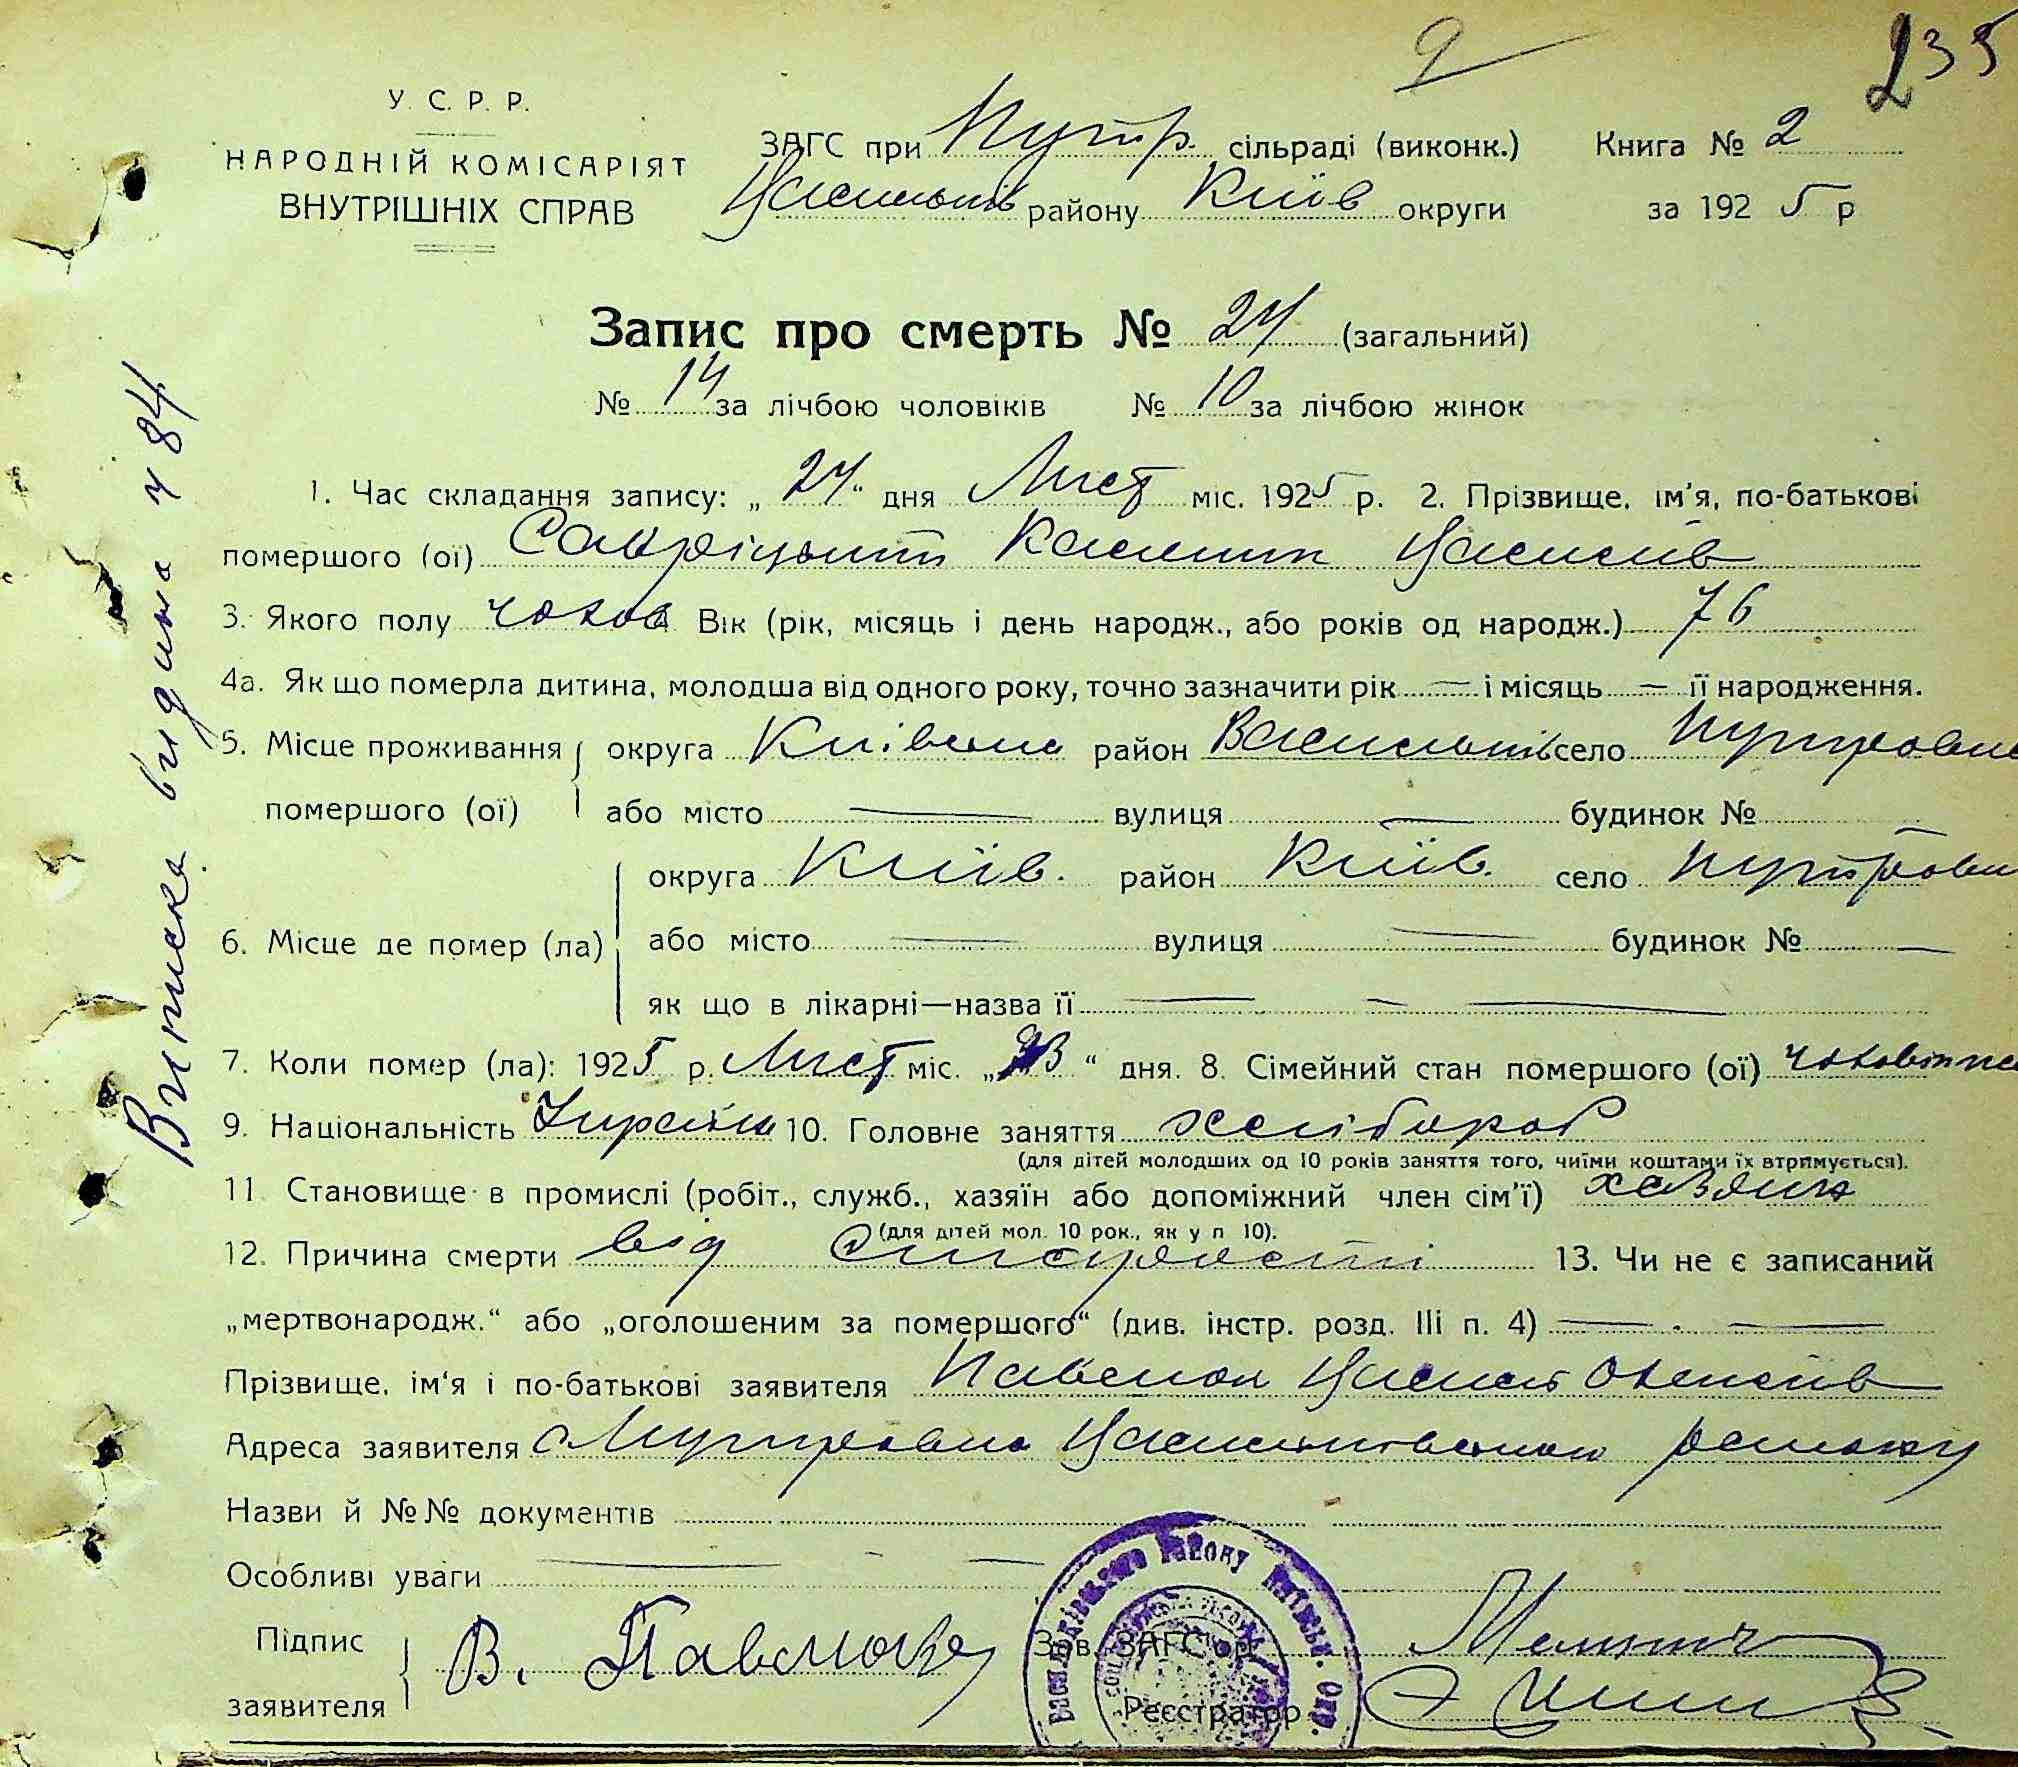 9 235
У. С. Р. Р.
НАРОДНІЙ КОМІСАРІЯТ
ВНУТРІШНІХ СПРАВ
ЗАГС при Путр. сільраді (виконк.) Книга № 2
Василькiв району Київ округи за 192 5 р
Запис про смерть № 24 (загальний)
№ 14 за лічбою чоловіків № 10 за лічбою жінок
1. Час складання запису: „ 24 “ дня Лист міс. 1925 р. 2. Прізвище, ім'я, по-батькові
помершого (ої)
3. Якого полу чолов Вік (рік, місяць і день народж., або років од народж.) 76
4а. Як що померла дитина, молодша від одного року, точно зазначити рік — і місяць — її народження.
5. Місце проживання округа Київська район Васильків село Путровка
помершого (ої) або місто — вулиця — будинок №
округа Київ. район Київ. село Путровка
6. Місце де помер (ла) або місто — вулиця — будинок № —
як що в лікарні—назва її — — —
7. Коли помер (ла): 1925 р. Лист міс. „ “ дня. 8. Сімейний стан помершого (ої)
9. Національність Україн 10. Головне заняття хлібороб
(для дітей молодших од 10 років заняття того, чиїми коштами їх втримується).
11 Становище в промислі (робіт., служб., хазяїн або допоміжний член сім'ї) хазяин
(для дітей мол. 10 рок., як у п 10).
12. Причина смерти від старости 13. Чи не є записаний
„мертвонародж.“ або „оголошеним за помершого“ (див. інстр. розд. III п. 4) — . —
Прізвище, ім'я і по-батькові заявителя Павленко Василь Олексіїв
Адреса заявителя с Путровка Васильківського району
Назви й №№ документів
Особливі уваги —
Підпис
заявителя
В. Павленко
Зов. ЗАГС'ом
Реєстратор
Васильківського Району Київськ. Окр.
Виписка видана ч 84